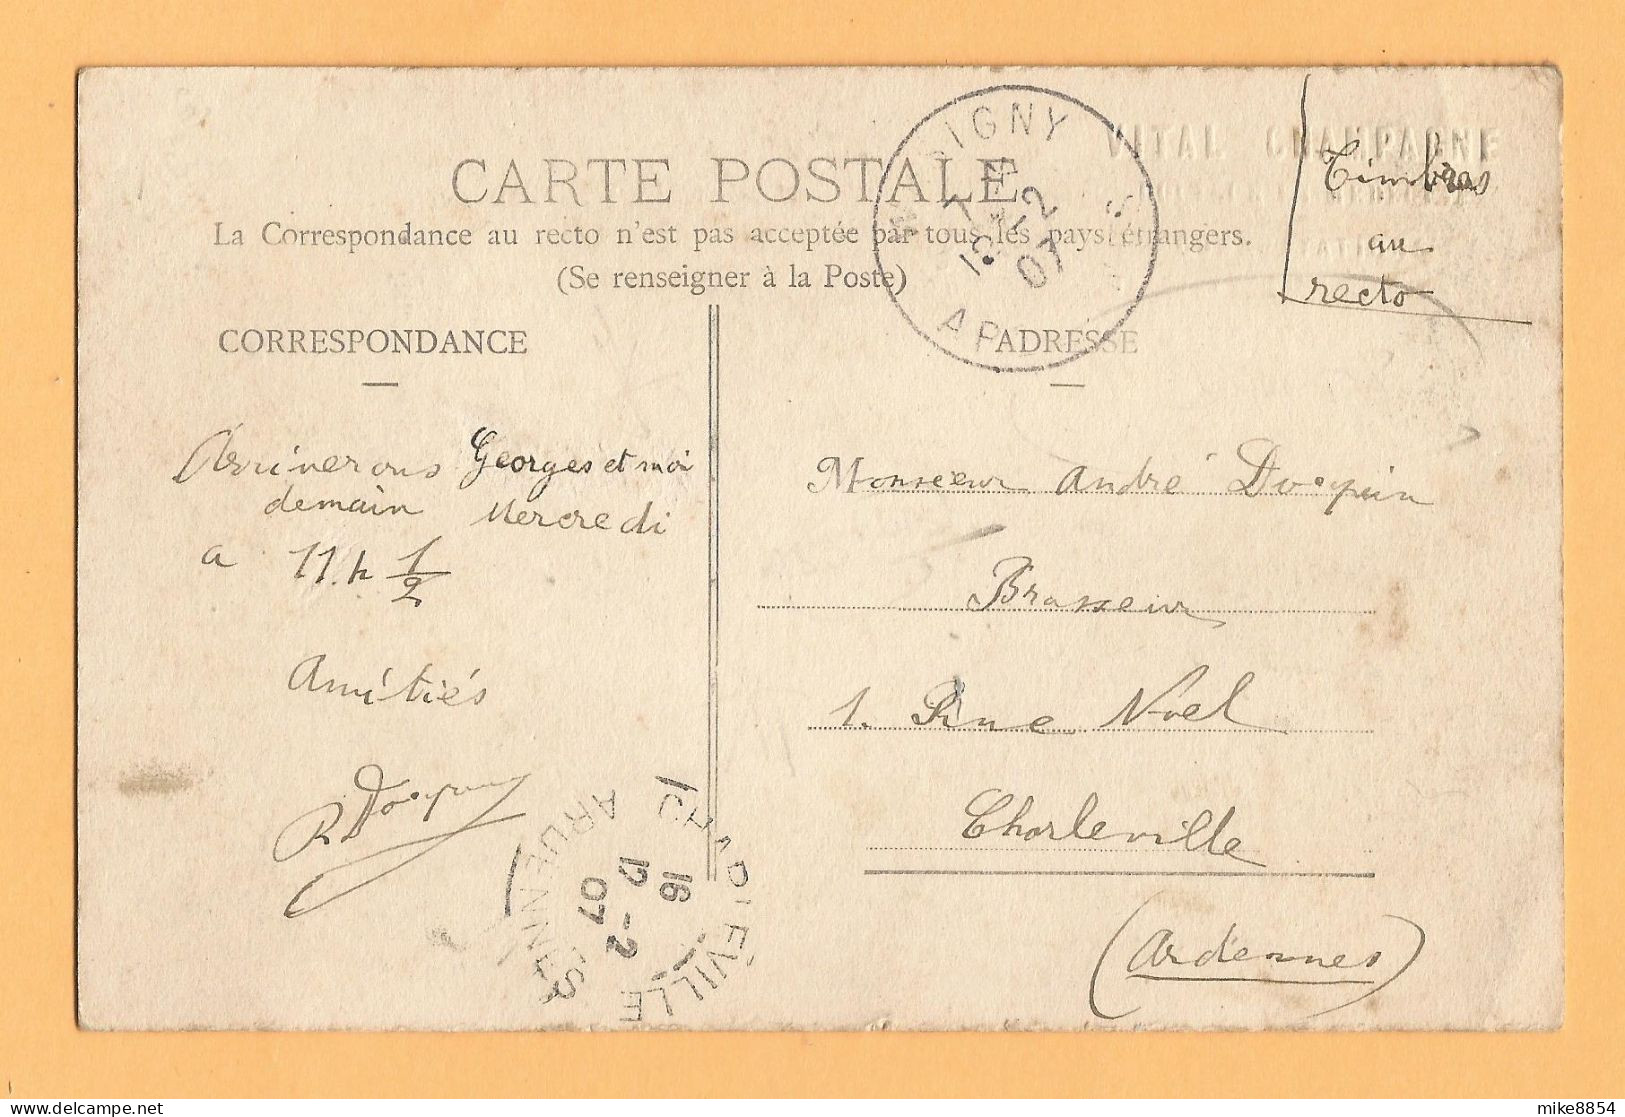 VITAL CHAMPAGNE
CARTE POSTALE
La Correspondance au recto n'est pas acceptée par tous les pays étrangers.
(Se renseigner à la Poste)
Timbres
au
recto
IGNY
12 -2
07
CORRESPONDANCE
ADRESSE
Arriverons Georges et moi
demain Mercredi
a 11 h 1/2
Amitiés
Monsieur André
Brasseur
1. Rue Noel
Charleville
(Ardennes)
CHARLEVILLE
ARDENNES
16
12 -2
07
mike8854